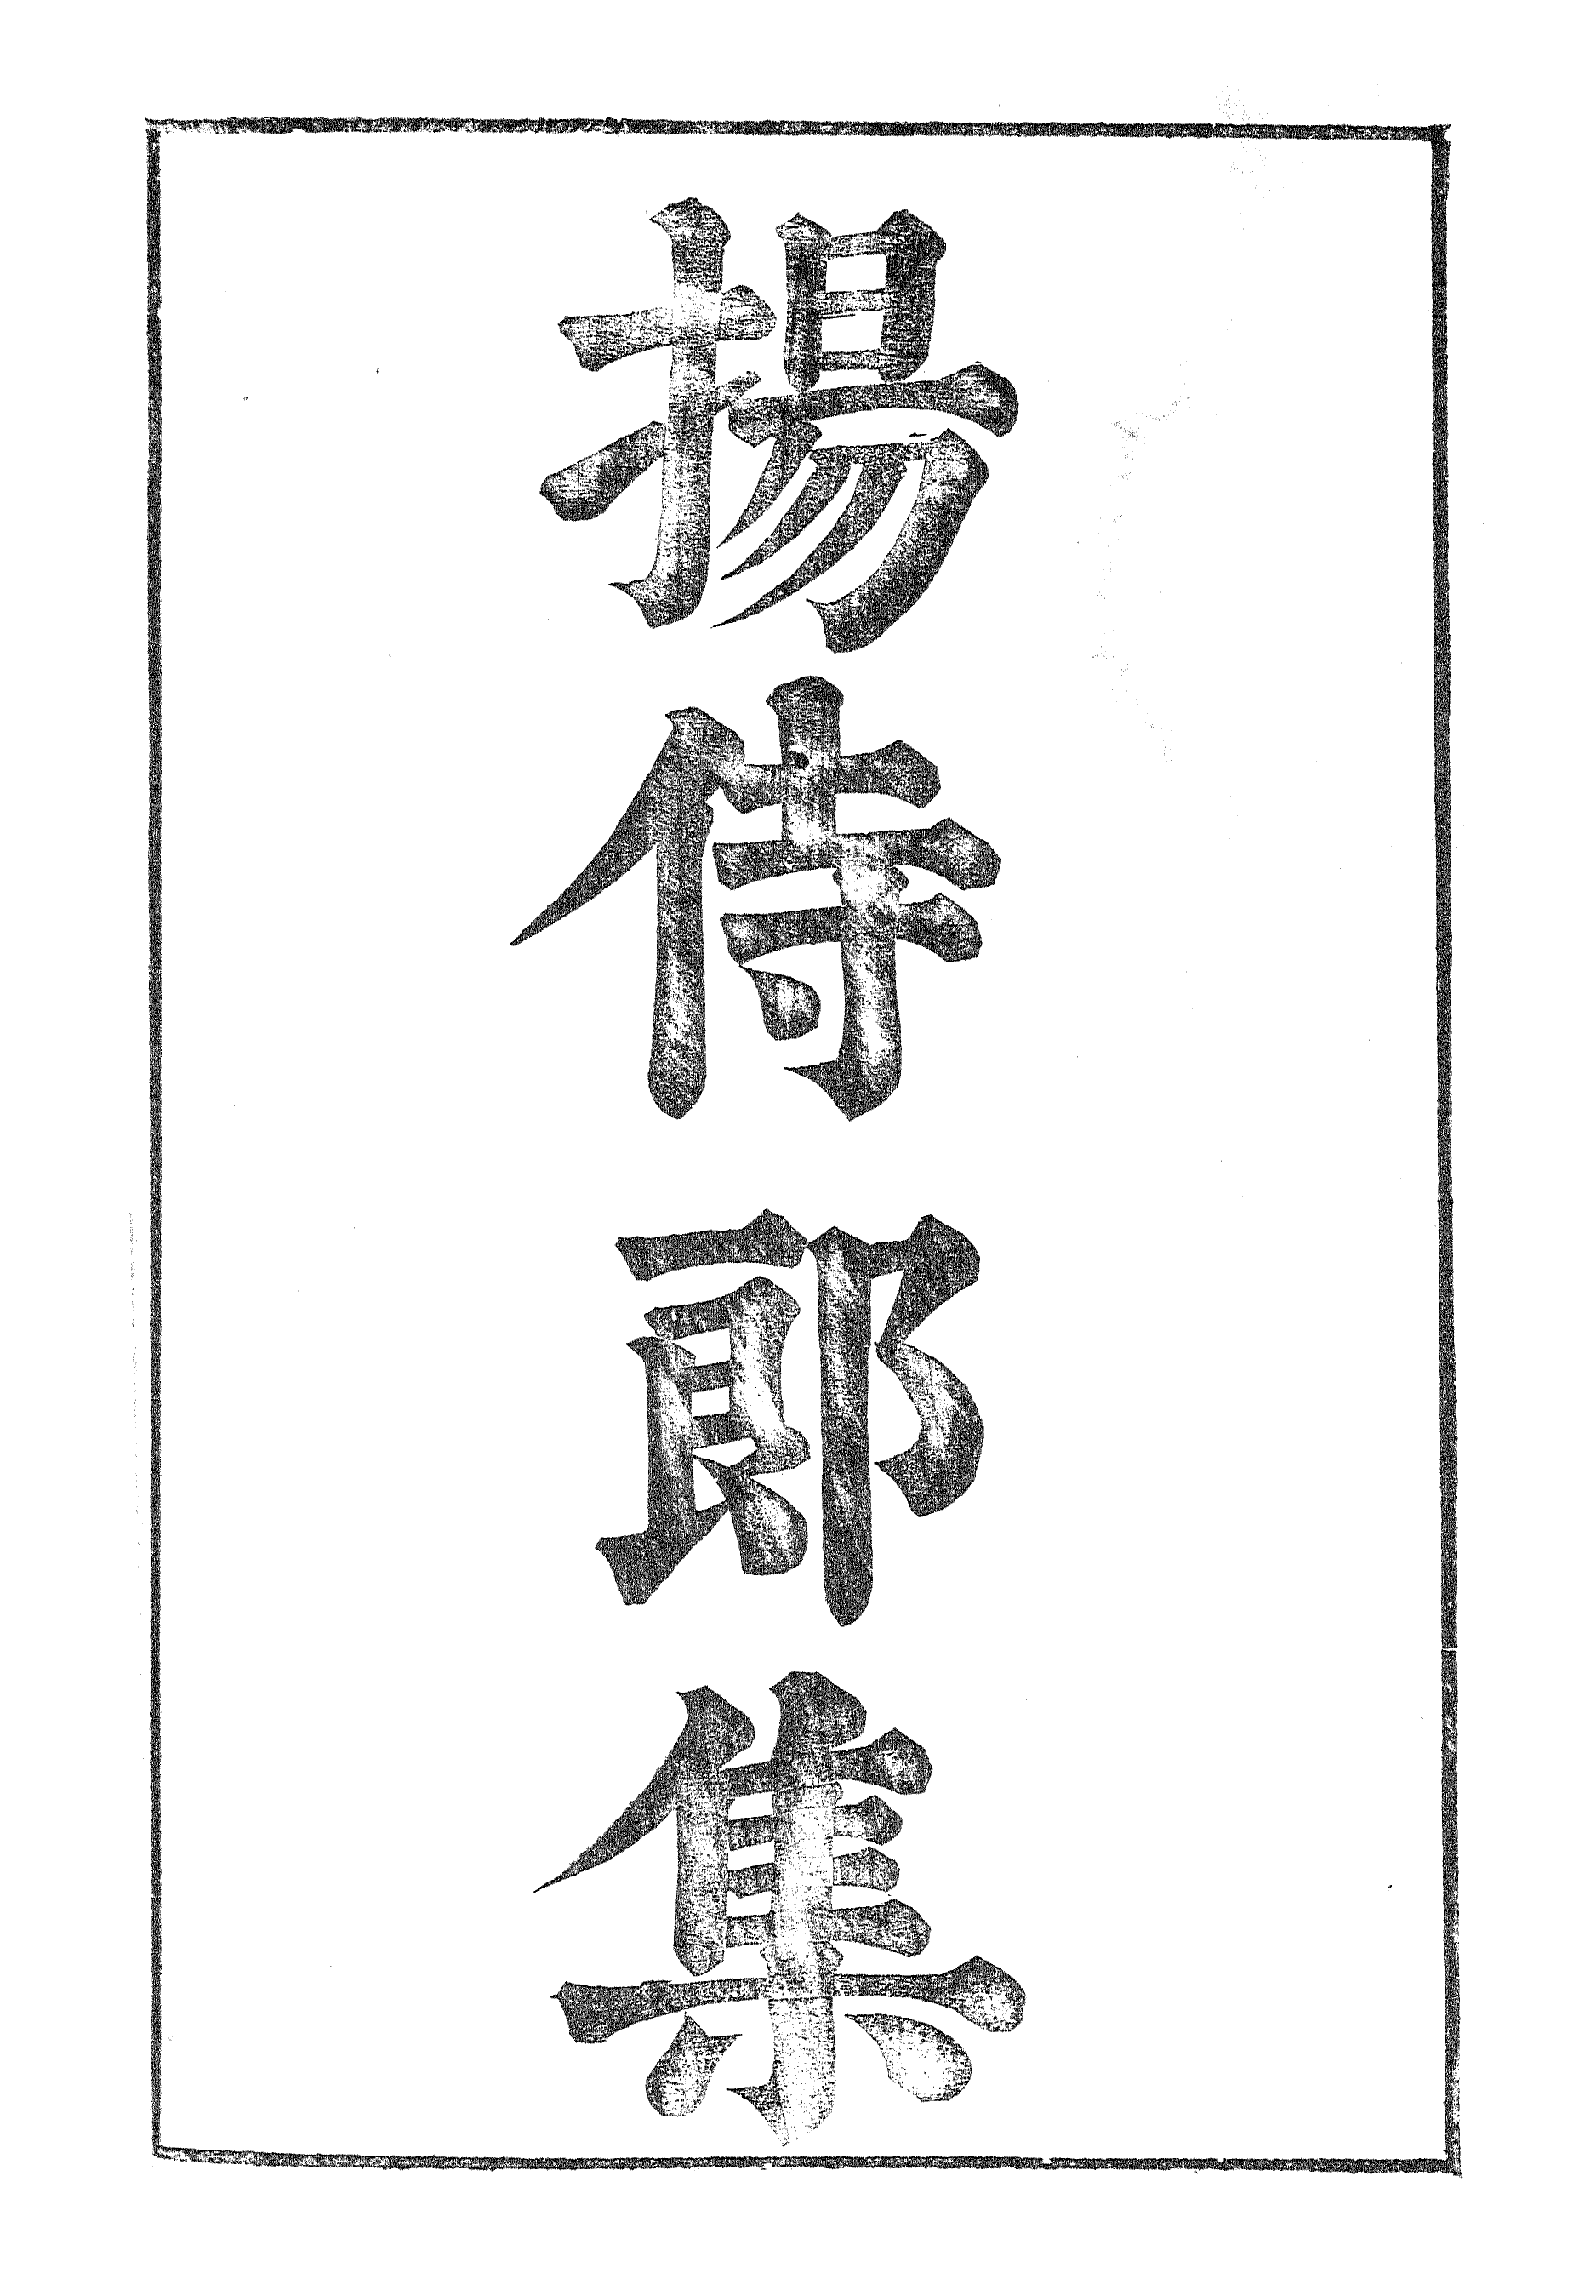 揚侍郎集